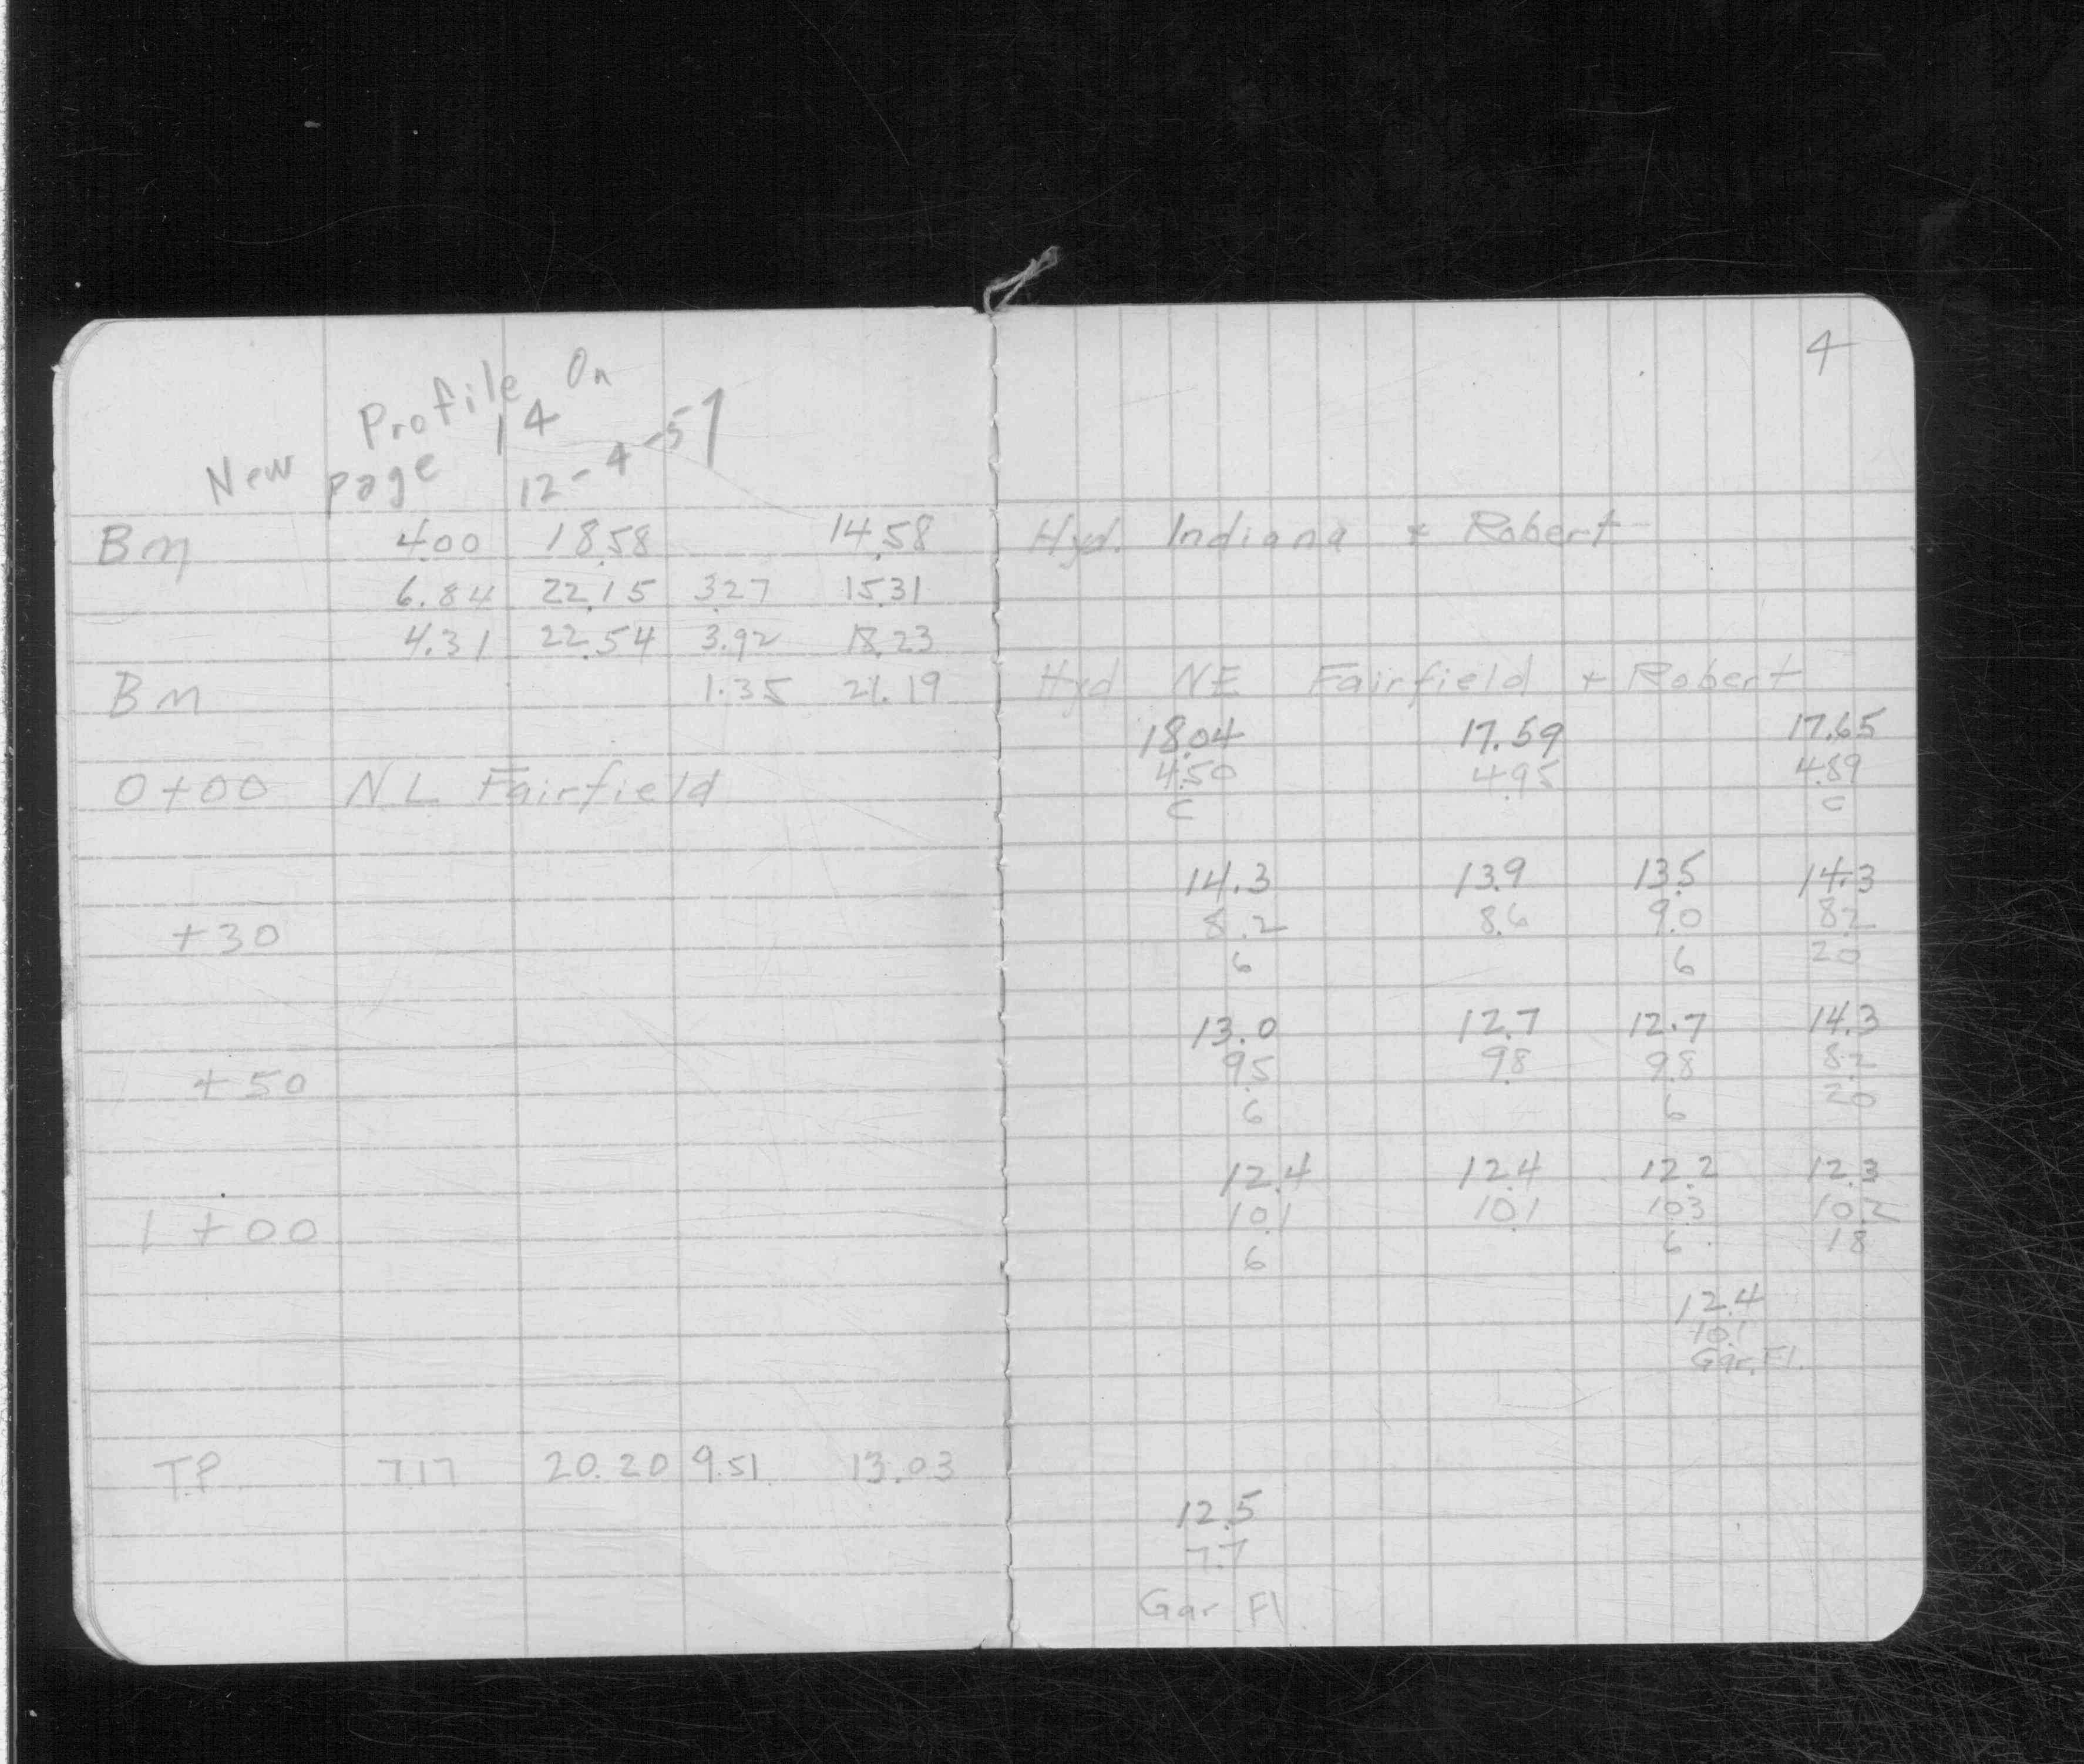 New Profile On
page 14 12-4-51
Bm 4.00 18.58 14.58
6.84 22.15 3.27 15.31
4.31 22.54 3.92 18.23
Bm 1.35 21.19
0+00 NL Fairfield
+30
+50
1+00
TP 7.17 20.20 9.51 13.03
4
Hyd. Indiana + Robert
Hyd NE Fairfield + Robert
18.04 17.59 17.65
4.50 4.95 4.89
C C
14.3 13.9 13.5 14.3
8.2 8.6 9.0 8.2
6 6 20
13.0 12.7 12.7 14.3
9.5 9.8 9.8 8.2
6 6 20
12.4 12.4 12.2 12.3
10.1 10.1 10.3 10.2
6 6 18
12.4
10.1
Gar. Fl.
12.5
7.7
Gar Fl.